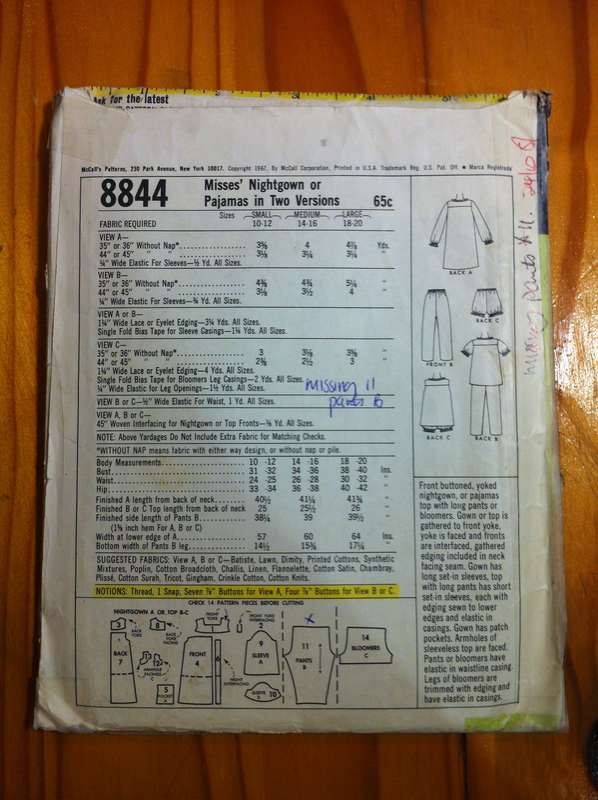 Ask for the latest
McCall's Patterns, 230 Park Avenue, New York 10017. Copyright 1967, By McCall Corporation, Printed in U.S.A. Trademark Reg. U.S. Pat. Off. ■ Marca Registrada
8844 Misses' Nightgown or
Pajamas in Two Versions 65c
Sizes SMALL MEDIUM LARGE
FABRIC REQUIRED 10-12 14-16 18-20
VIEW A—
35" or 36" Without Nap* 3⅜ 4 4⅞ Yds.
44" or 45" " " 3⅛ 3¼ 3¼ "
¼" Wide Elastic For Sleeves—½ Yd. All Sizes.
VIEW B—
35" or 36" Without Nap* 4¾ 4¾ 5¼ "
44" or 45" " " 3⅛ 3½ 4 "
¼" Wide Elastic For Sleeves—¾ Yd. All Sizes.
VIEW A or B—
1¼" Wide Lace or Eyelet Edging—3¼ Yds. All Sizes.
Single Fold Bias Tape for Sleeve Casings—1¼ Yds. All Sizes.
VIEW C—
35" or 36" Without Nap* 3 3⅛ 3⅜ "
44" or 45" " " 2⅜ 2½ 3 "
1¼" Wide Lace or Eyelet Edging—4 Yds. All Sizes.
Single Fold Bias Tape for Bloomers Leg Casings—2 Yds. All Sizes.
¼" Wide Elastic for Leg Openings—1½ Yds. All Sizes.
missing 11
pants B
VIEW B or C—½" Wide Elastic For Waist, 1 Yd. All Sizes.
VIEW A, B or C—
45" Woven Interfacing for Nightgown or Top Fronts—⅜ Yd. All Sizes.
NOTE: Above Yardages Do Not Include Extra Fabric for Matching Checks.
*WITHOUT NAP means fabric with either way design, or without nap or pile.
Body Measurements 10 -12 14 -16 18 -20
Bust 31 -32 34 -36 38 -40 Ins.
Waist 24 -25 26 -28 30 -32 "
Hip 33 -34 36 -38 40 -42 "
Finished A length from back of neck 40½ 41¼ 41¾ "
Finished B or C Top length from back of neck 25 25½ 26 "
Finished side length of Pants B 38¼ 39 39½ "
(1⅝ inch hem For A, B or C)
Width at lower edge of A 57 60 64 "
Bottom width of Pants B leg 14½ 15¾ 17¼ "
SUGGESTED FABRICS: View A, B or C—Batiste, Lawn, Dimity, Printed Cottons, Synthetic
Mixtures, Poplin, Cotton Broadcloth, Challis, Linen, Flannelette, Cotton Satin, Chambray,
Plissé, Cotton Surah, Tricot, Gingham, Crinkle Cotton, Cotton Knits.
NOTIONS: Thread, 1 Snap, Seven ⅜" Buttons for View A, Four ⅜" Buttons for View B or C.
CHECK 14 PATTERN PIECES BEFORE CUTTING
NIGHTGOWN A OR TOP B-C
3 BACK YOKE
8
FRONT YOKE 1
2 FRONT YOKE INTERFACING
BACK 7
12 ARMHOLE FACINGS C
5 POCKET A
FRONT 4
6
FRONT INTERFACING
9 SLEEVE A
SLEEVE B 10
x
11 PANTS B
14 BLOOMERS C
BACK A
FRONT B
BACK C
BACK C
BACK B
missing pants # 11.
Front buttoned, yoked
nightgown, or pajamas
top with long pants or
bloomers. Gown or top is
gathered to front yoke,
yoke is faced and fronts
are interfaced, gathered
edging included in neck
facing seam. Gown has
long set-in sleeves, top
with long pants has short
set-in sleeves, each with
edging sewn to lower
edges and elastic in
casings. Gown has patch
pockets. Armholes of
sleeveless top are faced.
Pants or bloomers have
elastic in waistline casing.
Legs of bloomers are
trimmed with edging and
have elastic in casings.